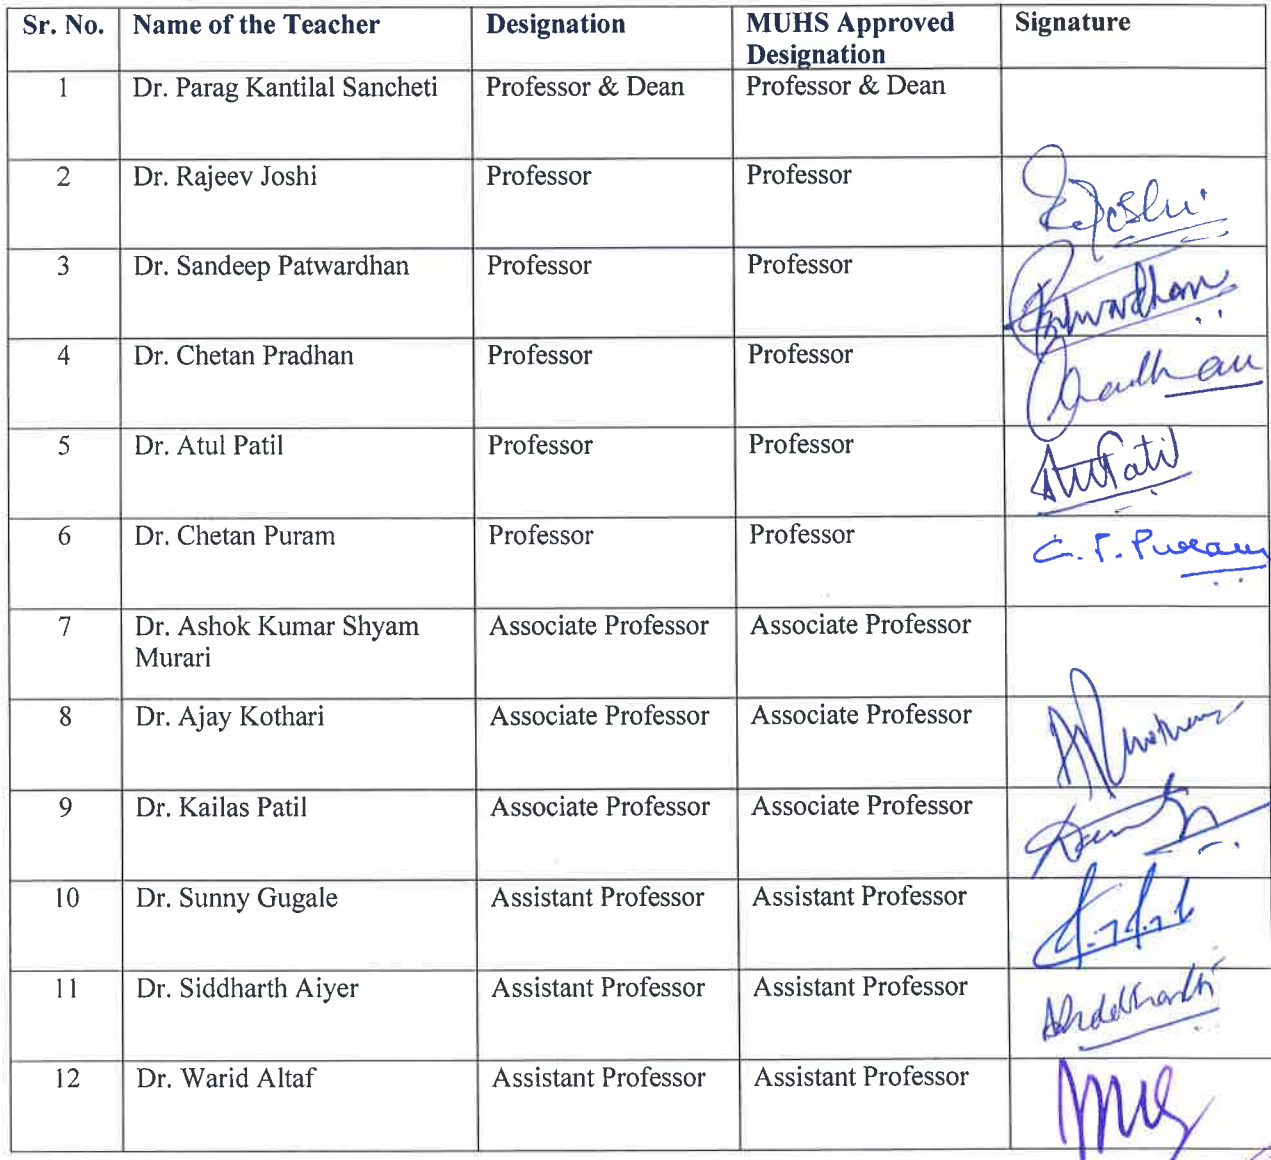 Sr. No. Name of the Teacher Designation MUHS Approved Signature
Designation
1 Dr. Parag Kantilal Sancheti Professor & Dean Professor & Dean
2 Dr. Rajeev Joshi Professor Professor
3 Dr. Sandeep Patwardhan Professor Professor
4 Dr. Chetan Pradhan Professor Professor
5 Dr. Atul Patil Professor Professor
6 Dr. Chetan Puram Professor Professor C. P. Puram
7 Dr. Ashok Kumar Shyam Associate Professor Associate Professor
Murari
8 Dr. Ajay Kothari Associate Professor Associate Professor
9 Dr. Kailas Patil Associate Professor Associate Professor
10 Dr. Sunny Gugale Assistant Professor Assistant Professor
11 Dr. Siddharth Aiyer Assistant Professor Assistant Professor
12 Dr. Warid Altaf Assistant Professor Assistant Professor